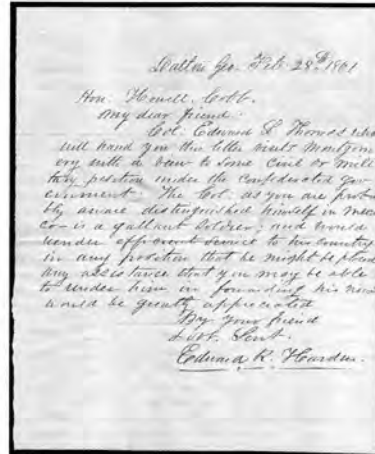 Dalton Geo. Feb. 28th 1861
Hon. Howell Cobb.
My dear friend.
Col. Edward L. Thomas who
will hand you this letter visits Montgom
ery with a view to some civil or mili
tary position under the confederated gov
ernment. The Col. as you are proba
bly aware distinguished himself in Mexi
co - is a gallant soldier; and would
render efficient service to his country
in any position that he might be placed
any assistance that you may be able
to render him in forwarding his
would be greatly appreciated
By your friend
Edward R. Harden.